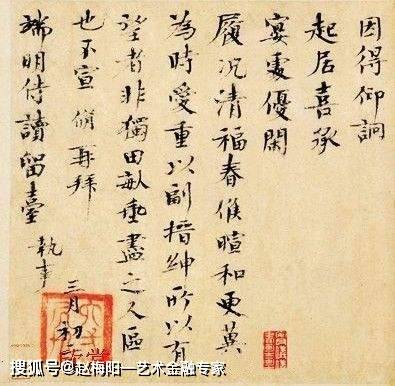 因得仰詗
起居喜承
宴處優閑
履況清福春候暄和更冀
為時愛重以副搢紳所以有
望者非獨田畝垂盡之人區
也不宣 脩再拜
端明侍讀留臺 執事
三月初
搜狐号@赵梅阳—艺术金融专家